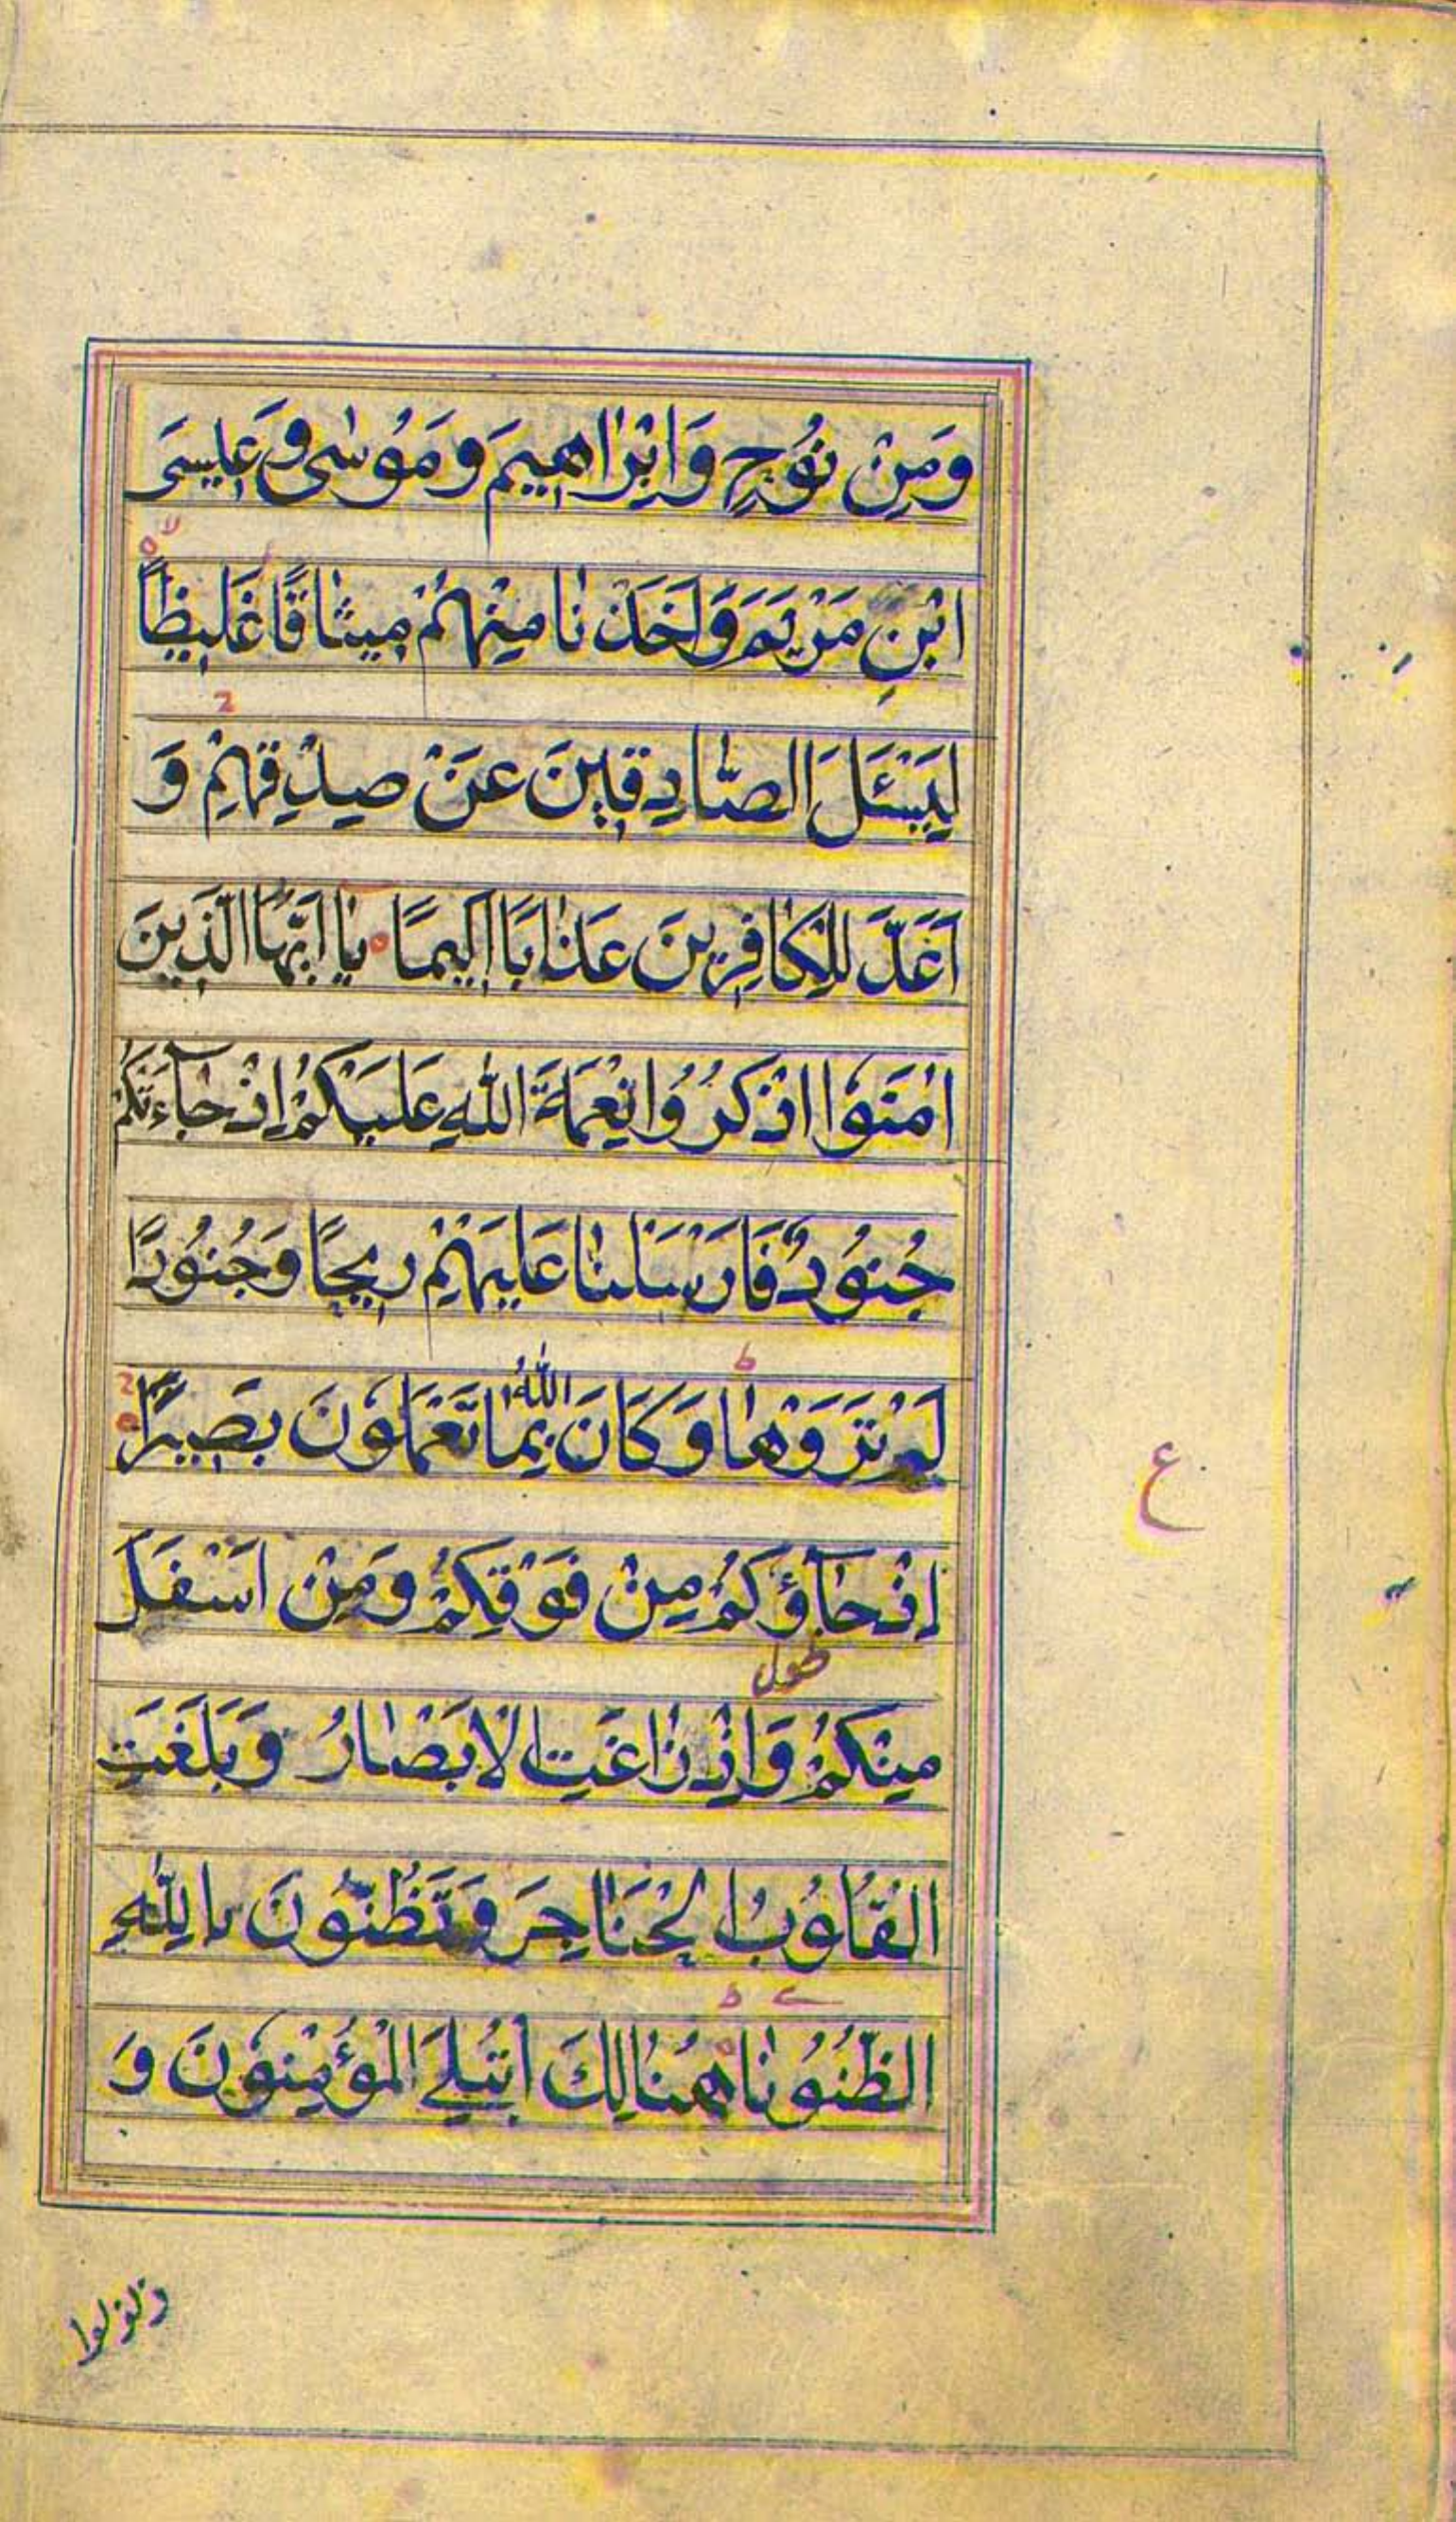 وَمِنْ نُوْحٍ وَاِبْرٰاهِيمَ وَمُوْسٰى وَعِيسَى
ابْنِ مَرْيَمَ وَاَخَذْنٰا مِنْهُمْ مِيثٰاقًا غَلِيظًا
لِيَسْئَلَ الصّٰادِقِينَ عَنْ صِدْقِهِمْ وَ
اَعَدَّ لِلْكٰافِرِينَ عَذٰابًا اَلِيمًا يٰا اَيُّهَا الَّذِينَ
اٰمَنُوا اذْكُرُوا نِعْمَةَ اللّٰهِ عَلَيْكُمْ اِذْ جٰآءَتْكُمْ
جُنُودٌ فَاَرْسَلْنٰا عَلَيْهِمْ رِيحًا وَجُنُودًا
لَمْ تَرَوْهٰا وَكَانَ اللّٰهُ بِمٰا تَعْمَلُونَ بَصِيرًا
اِذْ جٰآؤُكُمْ مِنْ فَوْقِكُمْ وَمِنْ اَسْفَلَ
مِنْكُمْ وَاِذْ زٰاغَتِ الْاَبْصٰارُ وَبَلَغَتِ
الْقُلُوبُ الْحَنٰاجِرَ وَتَظُنُّونَ بِاللّٰهِ
الظُّنُونٰا هُنٰالِكَ ابْتُلِيَ الْمُؤْمِنُونَ وَ
ع
وزلزلوا